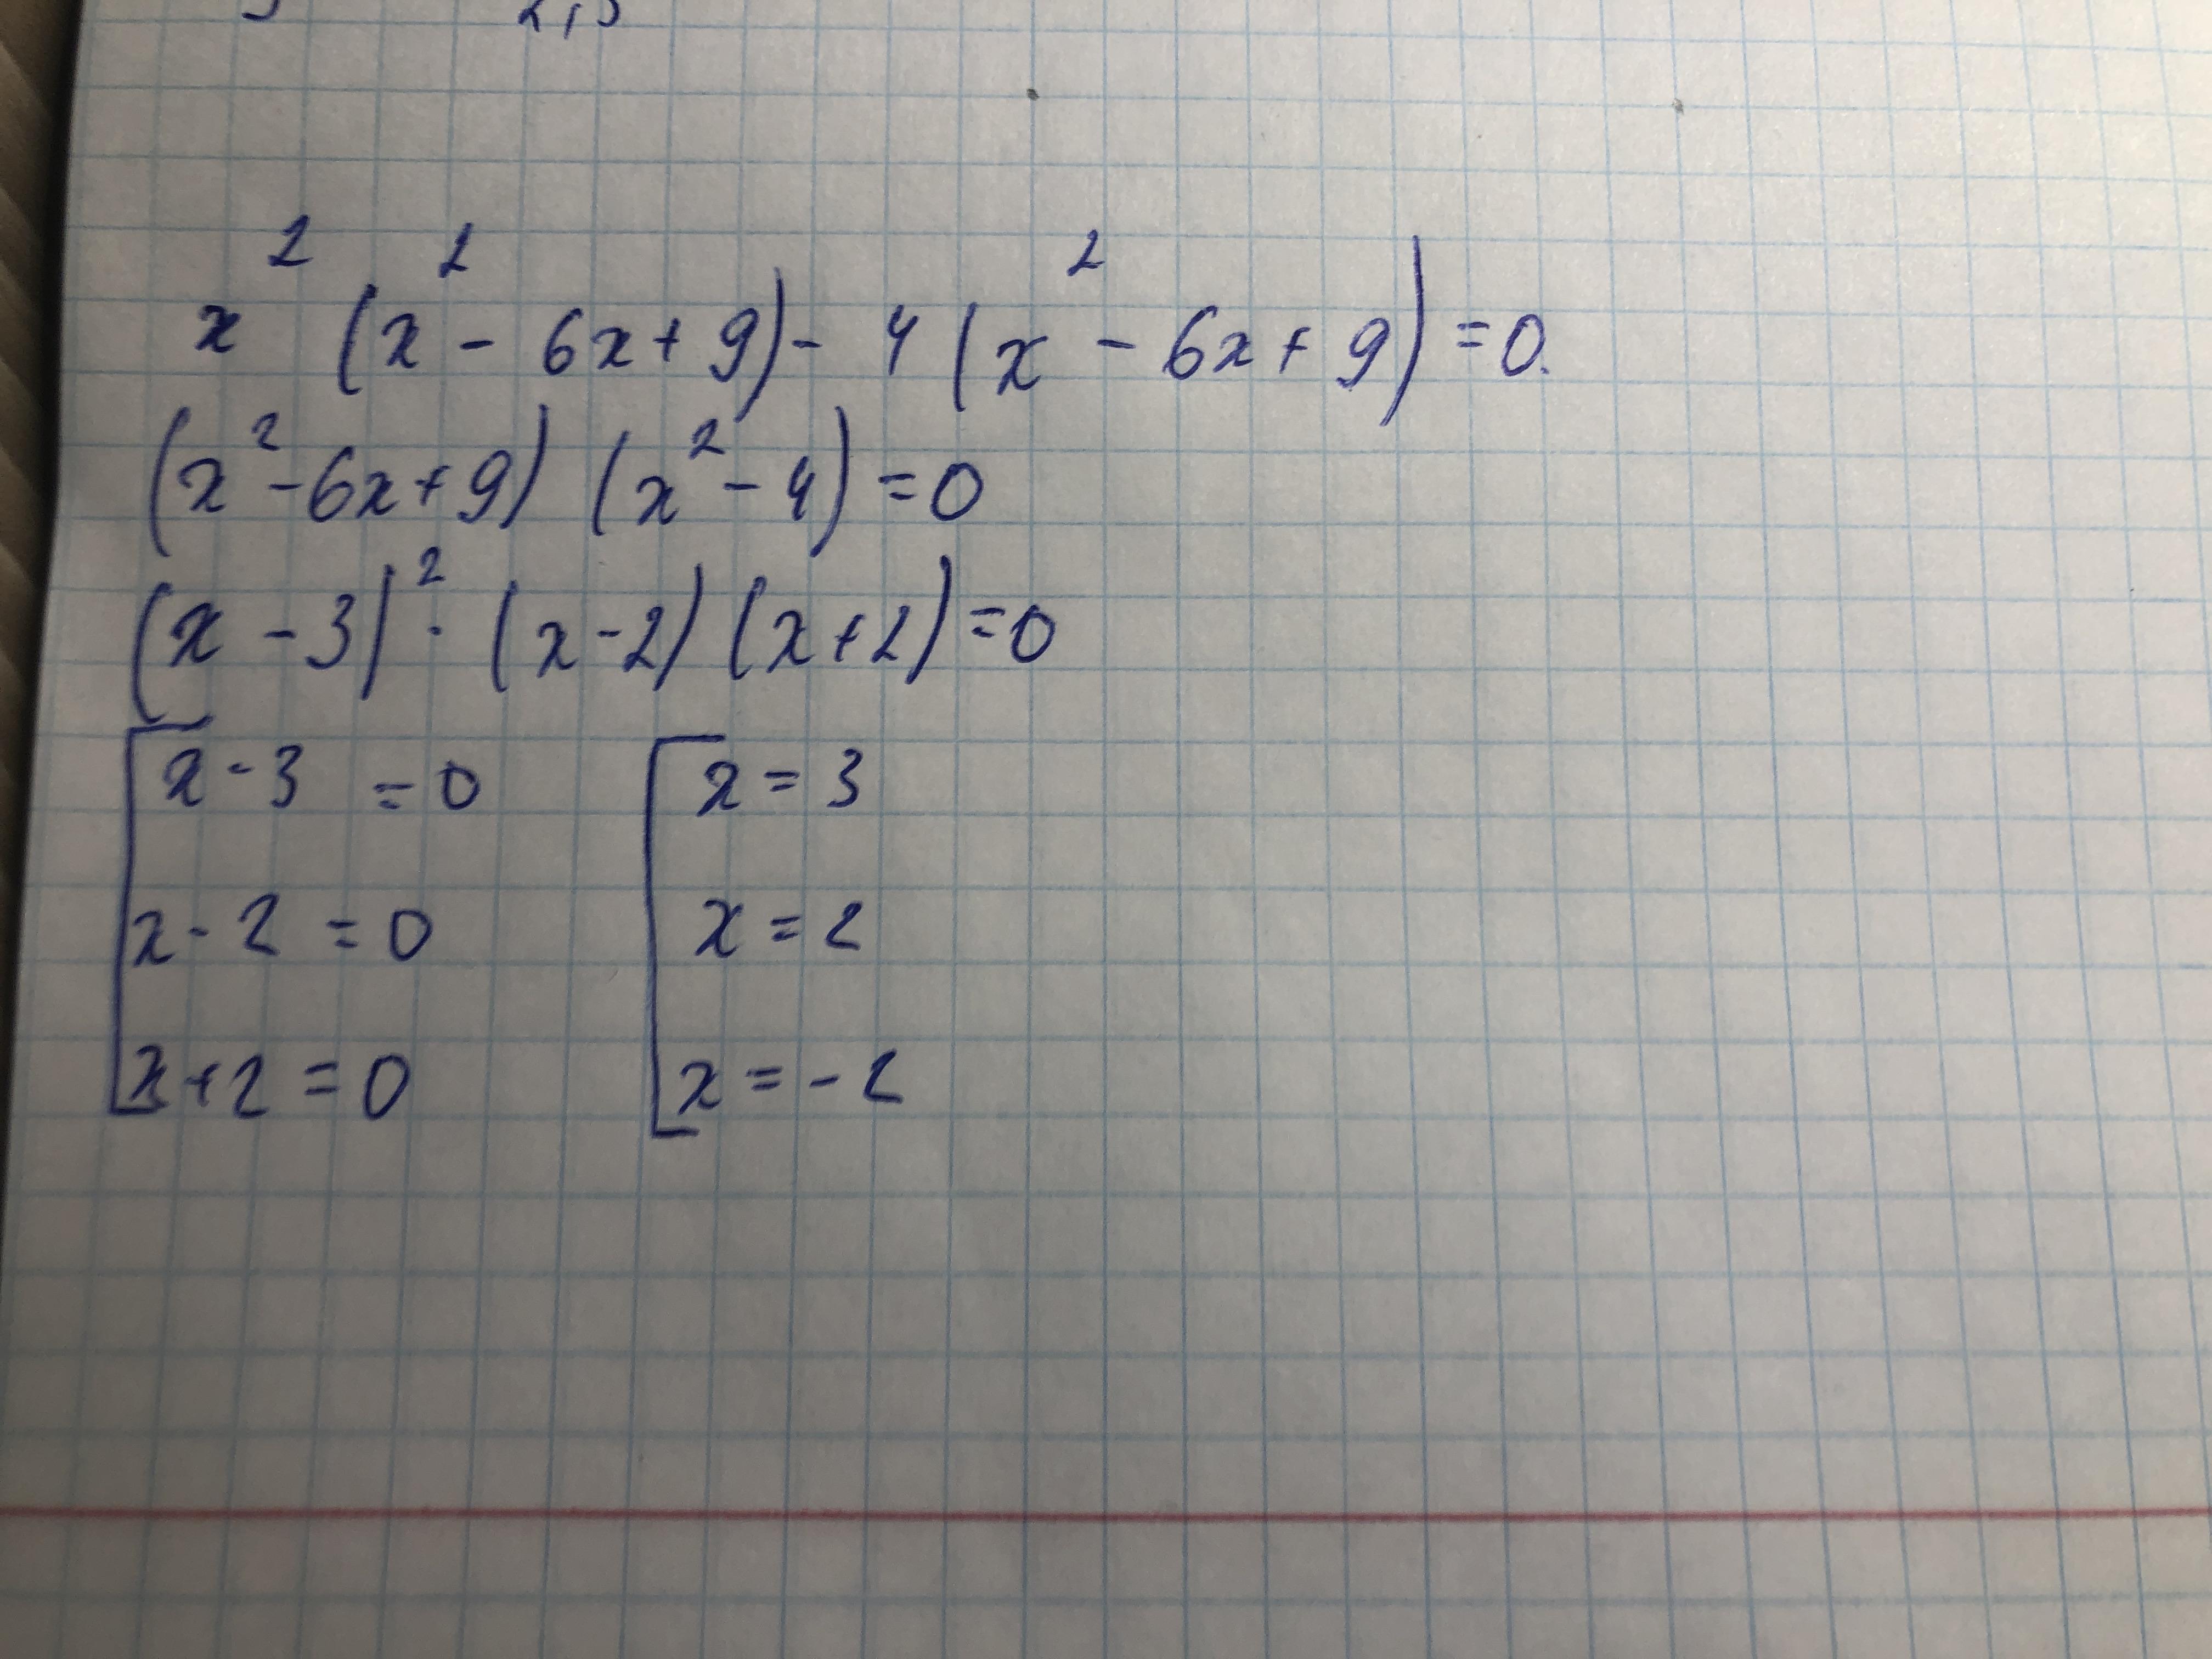 x² (x² - 6x + 9) - 4 (x² - 6x + 9) = 0.
(x² - 6x + 9) (x² - 4) = 0
(x - 3)² · (x - 2) (x + 2) = 0
[ x - 3 = 0 [ x = 3
x - 2 = 0 x = 2
x + 2 = 0 x = - 2